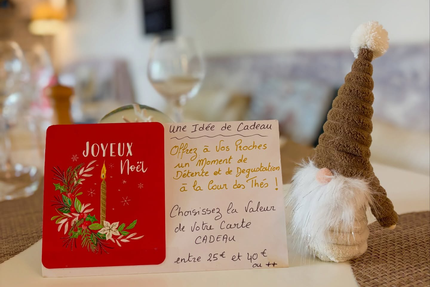 JOYEUX
Noël
Une Idée de Cadeau
Offrez à Vos Proches
un Moment de
Détente et de Degustation
à la Cour des Thés !
Choisissez la Valeur
de Votre Carte
CADEAU
entre 25€ et 40€
ou ++